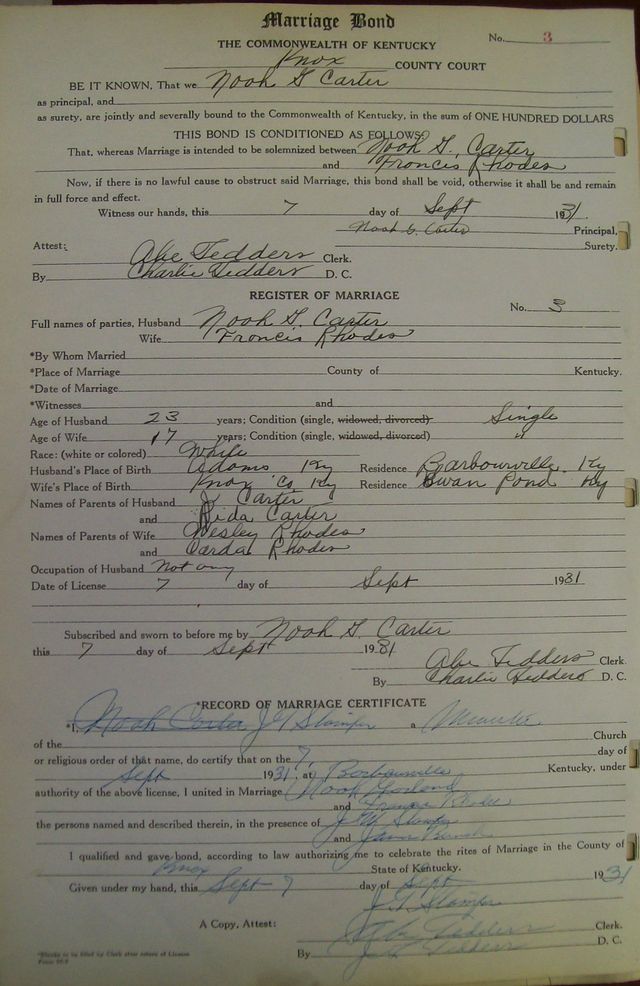 Marriage Bond
No. 3
THE COMMONWEALTH OF KENTUCKY
Knox COUNTY COURT
BE IT KNOWN, That we Noah G Carter
as principal, and
as surety, are jointly and severally bound to the Commonwealth of Kentucky, in the sum of ONE HUNDRED DOLLARS
THIS BOND IS CONDITIONED AS FOLLOWS:
That, whereas Marriage is intended to be solemnized between Noah G. Carter
and Francis Rhodes
Now, if there is no lawful cause to obstruct said Marriage, this bond shall be void, otherwise it shall be and remain
in full force and effect.
Witness our hands, this 7 day of Sept 1931.
Noah G. Carter Principal,
Surety.
Attest:
Abe Tedders Clerk.
By Charlie Tedders D. C.
REGISTER OF MARRIAGE
No. 3
Full names of parties, Husband Noah G Carter
Wife Francis Rhodes
*By Whom Married
*Place of Marriage County of Kentucky.
*Date of Marriage
*Witnesses and
Age of Husband 23 years; Condition (single, widowed, divorced) Single
Age of Wife 17 years; Condition (single, widowed, divorced) "
Race: (white or colored) White
Husband's Place of Birth Adams Ky Residence Barbourville Ky
Wife's Place of Birth Knox Co Ky Residence Swan Pond Ky
Names of Parents of Husband J. Carter
and Rida Carter
Names of Parents of Wife Wesley Rhodes
and Carda Rhodes
Occupation of Husband Not any
Date of License 7 day of Sept 1931
Subscribed and sworn to before me by Noah G. Carter
this 7 day of Sept 1931
Abe Tedders Clerk.
By Charlie Tedders D. C.
*RECORD OF MARRIAGE CERTIFICATE
*I, Noah Carter J Stamper a Minister
of the Church
or religious order of that name, do certify that on the 7 day of
Sept 1931, at Barbourville Kentucky, under
authority of the above license, I united in Marriage Noah
and Francis Rhodes
the persons named and described therein, in the presence of Stamper
and
I qualified and gave bond, according to law authorizing me to celebrate the rites of Marriage in the County of
Knox State of Kentucky.
Given under my hand, this Sept 7 day of Sept 1931
Stamper
A Copy, Attest: Abe Tedders Clerk.
By Tedders D. C.
*Blanks to be filled by Clerk after return of License